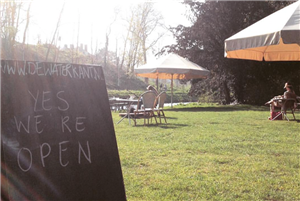 WWW.DEWATERKANT.N
YES
WE'RE
OPEN